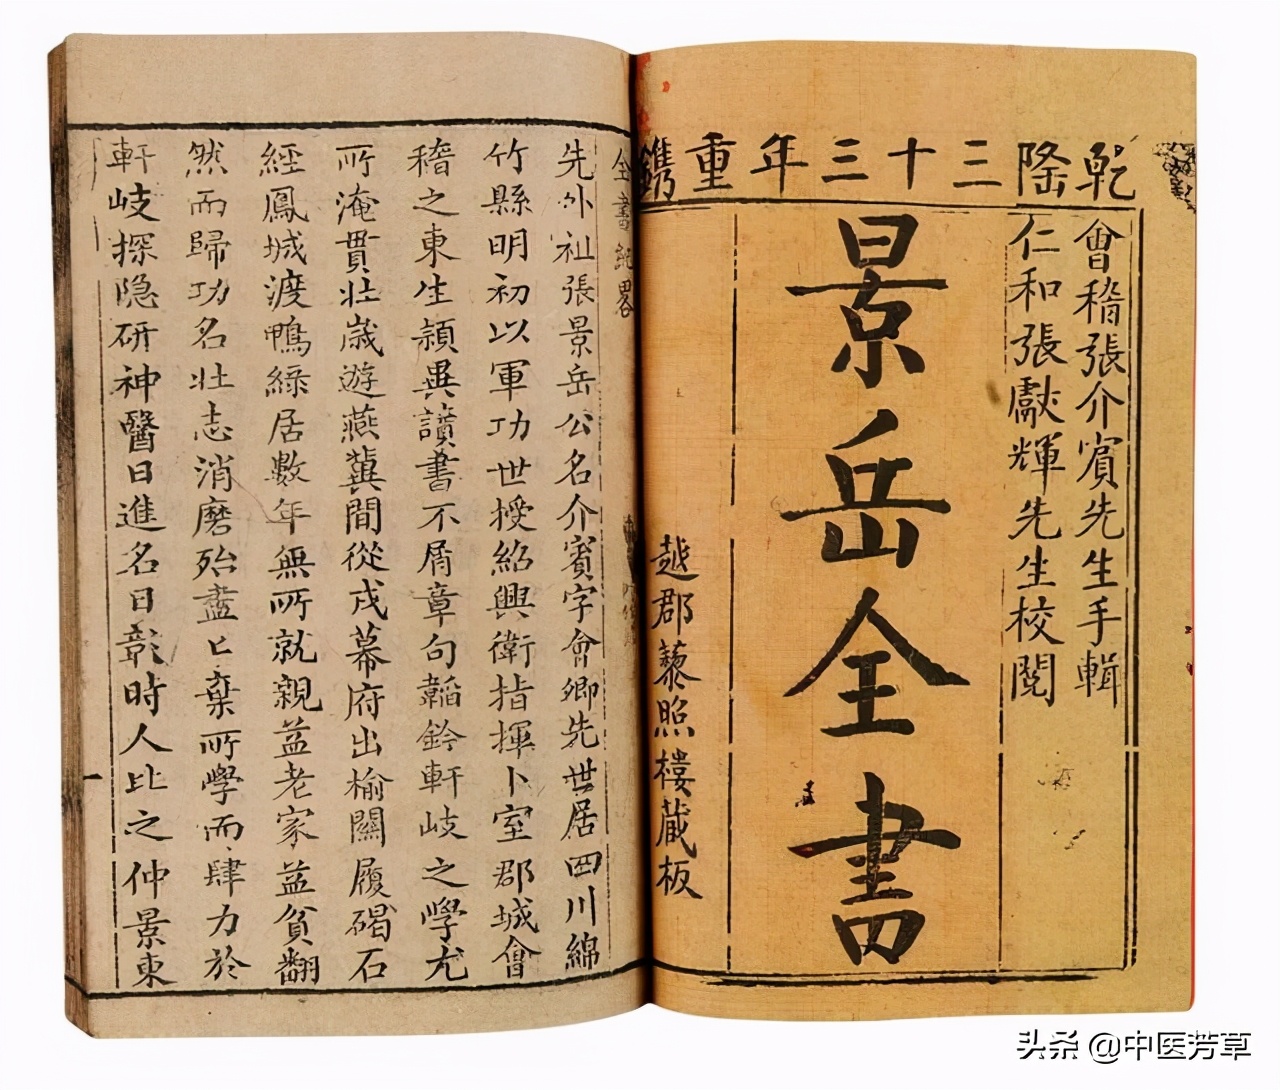 乾隆三十三年重鐫
會稽張介賓先生手輯
仁和張獻輝先生校閱
景岳全書
越郡藜照樓藏板
全書紀畧
先外祉張景岳公名介賓字會卿先世居四川綿
竹縣明初以軍功世授紹興衛指揮卜室郡城會
稽之東生頴異讀書不屑章句韜鈐軒岐之學尤
所淹貫壯歲遊燕冀間從戎幕府出榆關履碣石
經鳳城渡鴨綠居數年無所就親益老家益貧翻
然而歸功名壯志消磨殆盡匕棄所學而肆力於
軒岐探隐研神醫日進名日彰時人比之仲景東
一
头条 @中医芳草